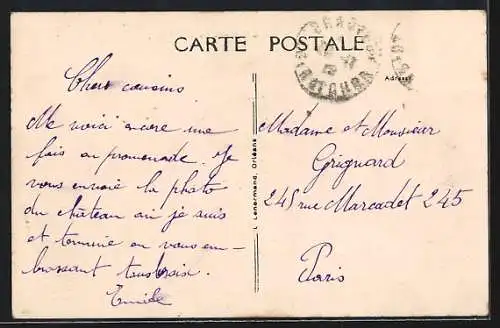 CARTE POSTALE
Adresse
Chers cousins
Me voici encore une
fois en promenade. Je
vous envoie la photo
du château où je suis
et termine en vous em-
brassant tous trois.
Emile
L. Lenormand, Orléans
Madame et Monsieur
Grignard
245 rue Marcadet 245
Paris